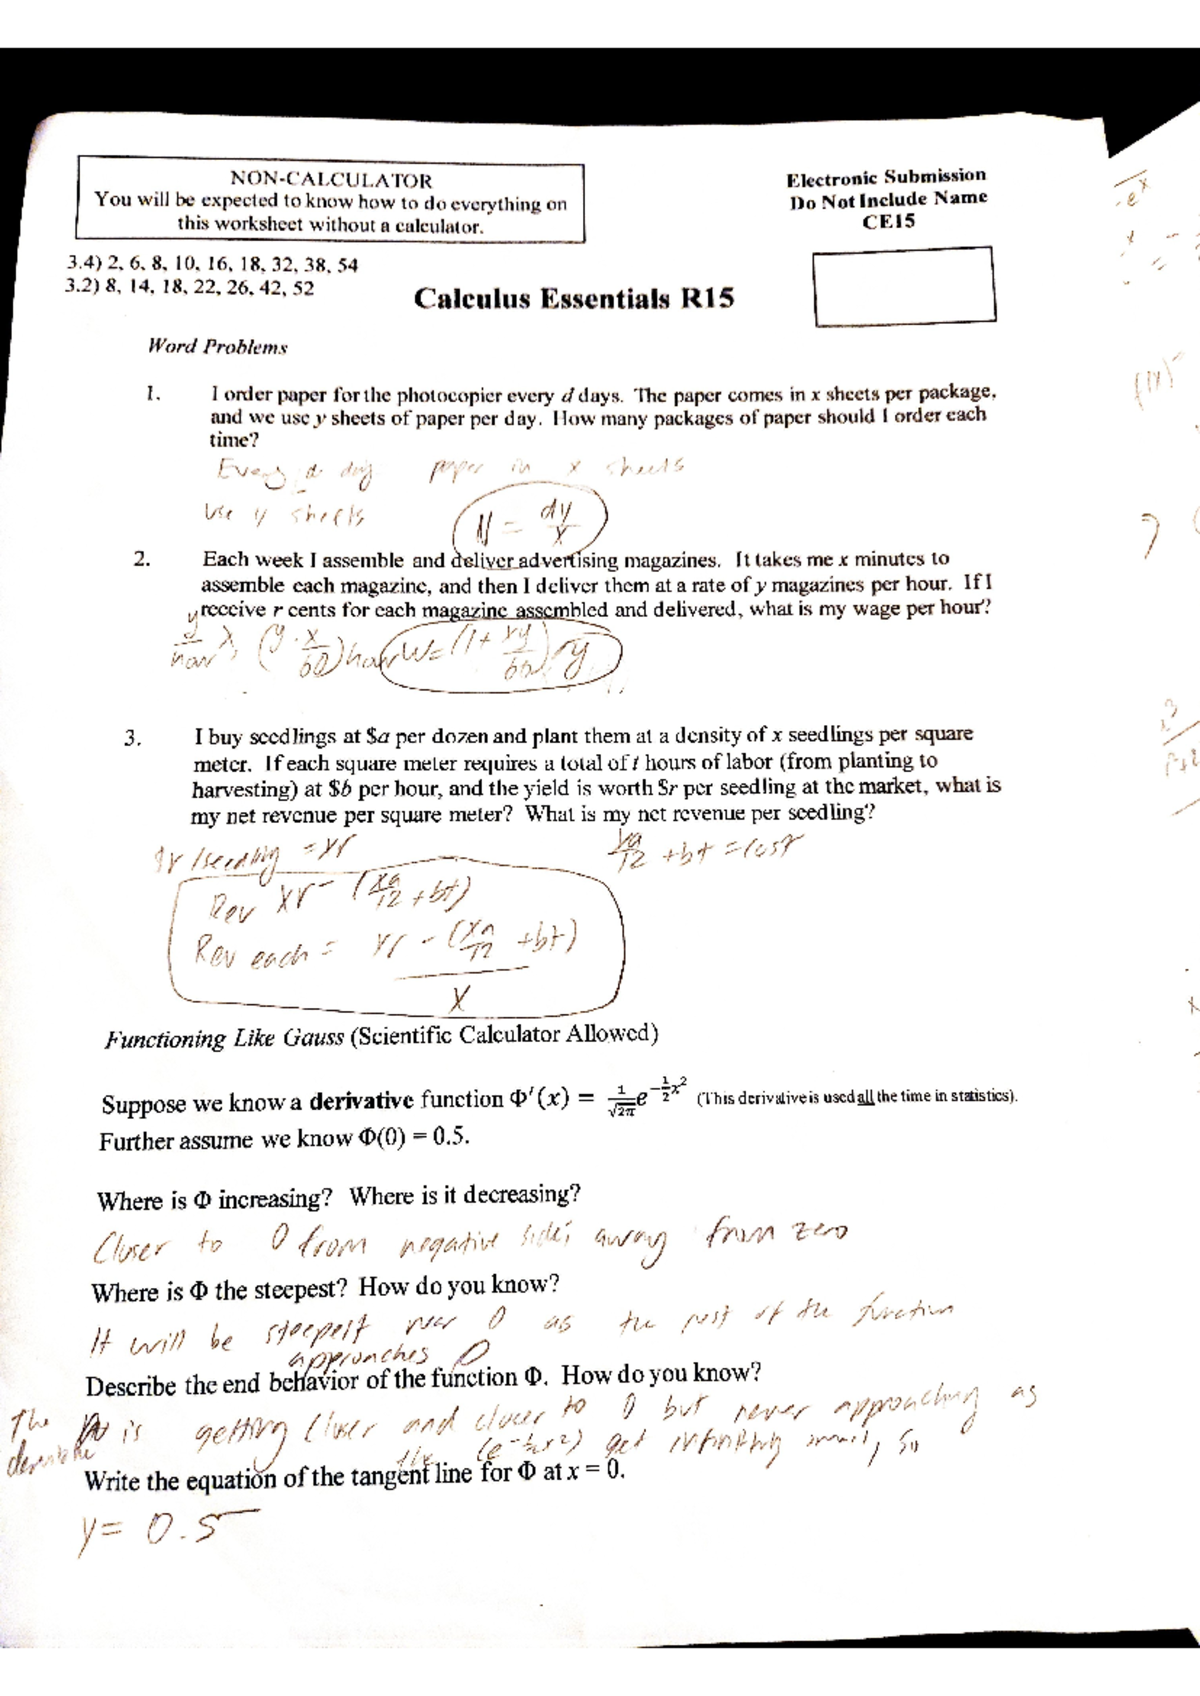 NON-CALCULATOR
You will be expected to know how to do everything on
this worksheet without a calculator.
Electronic Submission
Do Not Include Name
CE15
3.4) 2, 6, 8, 10, 16, 18, 32, 38, 54
3.2) 8, 14, 18, 22, 26, 42, 52
Calculus Essentials R15
Word Problems
1. I order paper for the photocopier every d days. The paper comes in x sheets per package,
and we use y sheets of paper per day. How many packages of paper should I order each
time?
Every d day paper in x sheets
use y sheets N = dy/x
2. Each week I assemble and deliver advertising magazines. It takes me x minutes to
assemble each magazine, and then I deliver them at a rate of y magazines per hour. If I
receive r cents for each magazine assembled and delivered, what is my wage per hour?
y/hour (y · x/60) hour W = (1 + xy/60) y
3. I buy seedlings at $a per dozen and plant them at a density of x seedlings per square
meter. If each square meter requires a total of t hours of labor (from planting to
harvesting) at $b per hour, and the yield is worth $r per seedling at the market, what is
my net revenue per square meter? What is my net revenue per seedling?
$r/seedling = xr xa/12 + bt = cost
Rev xr - (xa/12 + bt)
Rev each = xr - (xa/12 + bt)
x
Functioning Like Gauss (Scientific Calculator Allowed)
Suppose we know a derivative function Φ'(x) = 1/√2π e^-½x² (This derivative is used all the time in statistics).
Further assume we know Φ(0) = 0.5.
Where is Φ increasing? Where is it decreasing?
Closer to 0 from negative side; away from zero
Where is Φ the steepest? How do you know?
It will be steepest near 0 as the rest of the function
approaches 0
Describe the end behavior of the function Φ. How do you know?
The derivative is getting closer and closer to 0 but never approaching as
the (e^-½x²) get infinitly small, so
Write the equation of the tangent line for Φ at x = 0.
y = 0.5